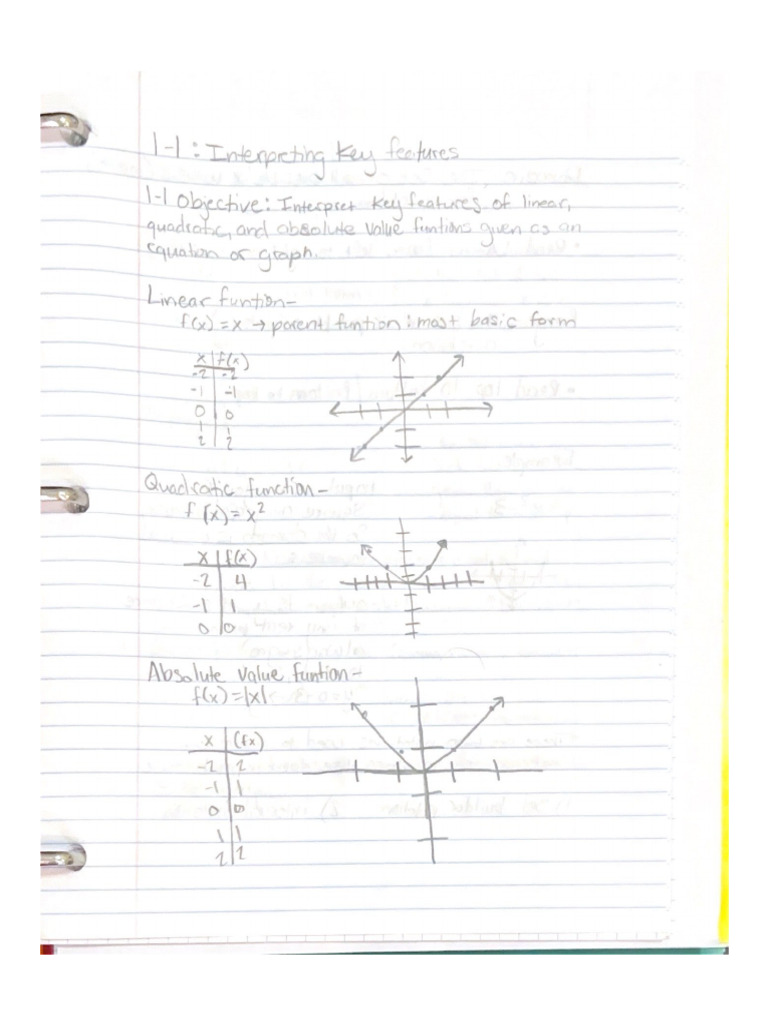 1-1: Interpreting key features
1-1 Objective: Interpret key features of linear,
quadratic, and absolute value funtions given as an
equation or graph.
Linear funtion-
f(x) = x → parent funtion: most basic form
x | f(x)
-2 | -2
-1 | -1
0 | 0
1 | 1
2 | 2
Quadratic function-
f(x) = x²
x | f(x)
-2 | 4
-1 | 1
0 | 0
Absolute value funtion-
f(x) = |x|
x | (fx)
-2 | 2
-1 | 1
0 | 0
1 | 1
2 | 2